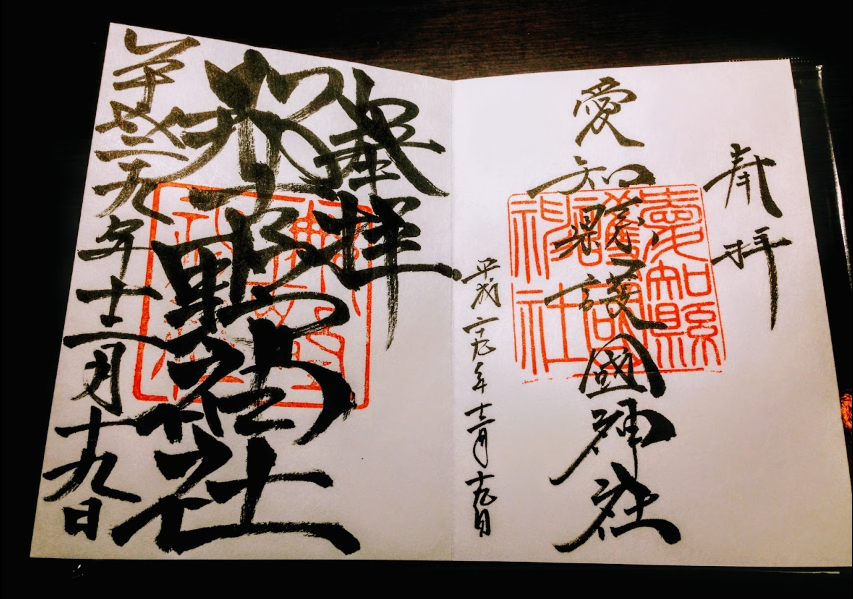 奉拝
愛知縣護國神社
愛知縣
護國
神社
平成二十九年十二月十九日
奉拝
那古野神社
平成二九年十二月十九日